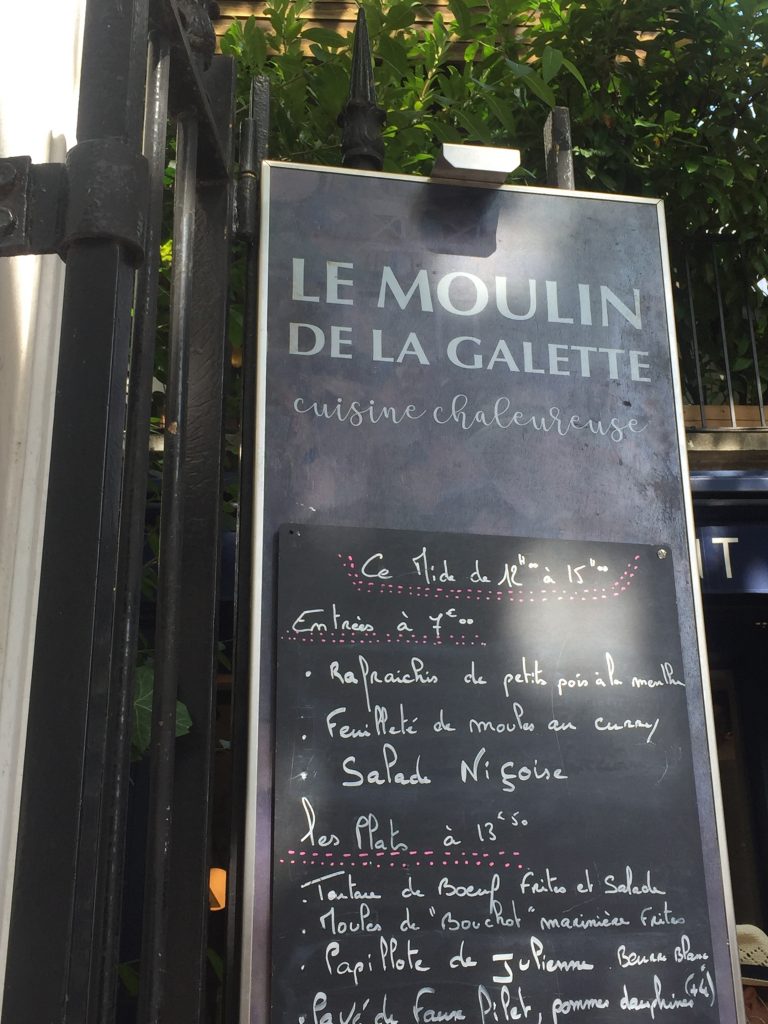 LE MOULIN
DE LA GALETTE
cuisine chaleureuse
IT
Ce Midi de 12"00 à 15"00
Entrées à 7€00
• Rafraichis de petits pois à la menthe
• Feuilleté de moules au curry
• Salade Niçoise
les Plats à 13€50
• Tartare de Boeuf Frites et Salade
• Moules de "Bouchot" marinière Frites
• Papillote de Julienne Beurre Blanc
• Pavé de Faux Filet, pommes dauphines (+4)